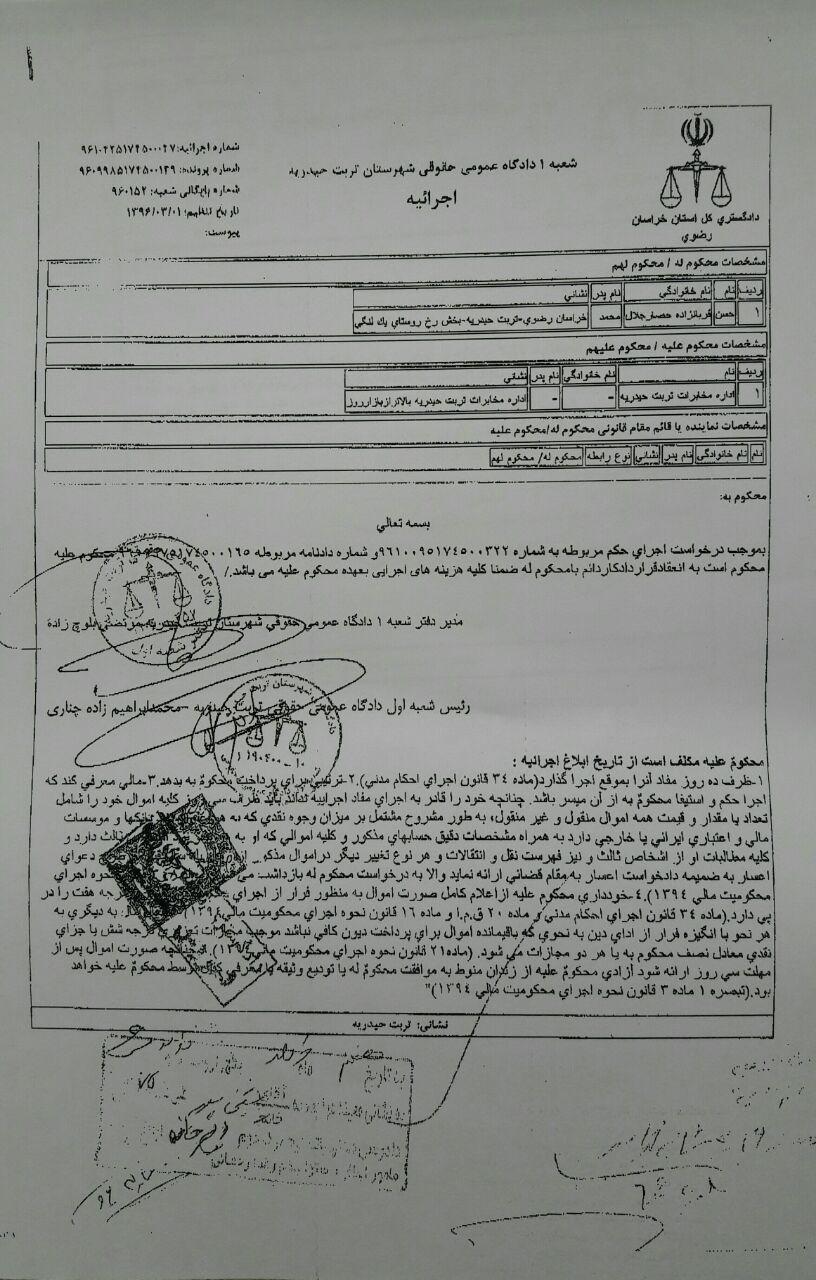 شعبه ۱ دادگاه عمومی حقوقی شهرستان تربت حیدریه
اجرائیه
دادگستري کل استان خراسان
رضوي
شماره اجرائیه:
شماره پرونده: ۹۶۰۹۹۸۵۱۷۴۵۰۰۱۴۹
شماره بایگانی شعبه: ۹۶۰۱۵۲
تاریخ تنظیم: ۱۳۹۶/۰۳/۰۱
پیوست:
مشخصات محکوم له / محکوم لهم
ردیف نام نام خانوادگي نام پدر نشاني
۱ حسن قربانزاده حصارجلال محمد خراسان رضوي-تربت حیدریه-بخش رخ روستاي يك لنگي
مشخصات محکوم علیه / محکوم علیهم
ردیف نام نام خانوادگي نام پدر نشاني
۱ اداره مخابرات تربت حیدریه - - اداره مخابرات تربت حیدریه بالاترازبازارروز
مشخصات نماینده یا قائم مقام قانونی محکوم له/محکوم علیه
نام نام خانوادگي نام پدر نشاني نوع رابطه محکوم له/ محکوم لهم
محکوم به:
بسمه تعالي
بموجب درخواست اجراي حکم مربوطه به شماره ۹۶۱۰۰۹۵۱۷۴۵۰۰۳۲۲و شماره دادنامه مربوطه محکوم علیه
محکوم است به انعقادقراردادکاردائم بامحکوم له ضمنا کلیه هزینه های اجرایی بعهده محکوم علیه می باشد./
مدیر دفتر شعبه ۱ دادگاه عمومی حقوقي شهرستان تربت حیدریه-مرتضي بلوچ زاده
رئیس شعبه اول دادگاه عمومی حقوقي تربت حیدریه -محمدابراهیم زاده چناری
محکومٌ علیه مکلف است از تاریخ ابلاغ اجرائیه :
۱-ظرف ده روز مفاد آنرا بموقع اجرا گذارد(ماده ۳۴ قانون اجراي احکام مدني).۲-ترتیبي براي پرداخت محکومٌ به بدهد.۳-مالي معرفي کند که
اجرا حکم و استیفا محکومٌ به از آن میسر باشد. چنانچه خود را قادر به اجراي مفاد اجراییه نداند باید ظرف سي روز کلیه اموال خود را شامل
تعداد یا مقدار و قیمت همه اموال منقول و غیر منقول، به طور مشروح مشتمل بر میزان وجوه نقدي که به هر بانکها و موسسات
مالي و اعتباري ایراني یا خارجي دارد به همراه مشخصات دقیق حسابهاي مذکور و کلیه اموالي که او به ثالث دارد و
کلیه مطالبات او از اشخاص ثالث و نیز فهرست نقل و انتقالات و هر نوع تغییر دیگر دراموال مذکور از دعواي
اعسار به ضمیمه دادخواست اعسار به مقام قضائي ارائه نماید والا به درخواست محکوم له بازداشت نحوه اجراي
محکومیت مالي ۱۳۹۴).۴-خودداري محکوم علیه ازاعلام کامل صورت اموال به منظور فرار از اجراي درجه هفت را در
پي دارد.(ماده ۳۴ قانون اجراي احکام مدني و ماده ۲۰ ق.م.ا و ماده ۱۶ قانون نحوه اجراي محکومیت مالي به دیگري به
هر نحو با انگیزه فرار از اداي دین به نحوي که باقیمانده اموال براي پرداخت دیون کافي نباشد موجب مجازات تعزیري درجه شش یا جزاي
نقدي معادل نصف محکوم به یا هر دو مجازات مي شود. (ماده۲۱ قانون نحوه اجراي محکومیت مالي چنانچه صورت اموال پس از
مهلت سي روز ارائه شود آزادي محکومٌ علیه از زندان منوط به موافقت محکومٌ له یا تودیع وثیقه یا معرفي کفیل توسط محکومٌ علیه خواهد
بود.(تبصره ۱ ماده ۳ قانون نحوه اجراي محکومیت مالي ۱۳۹۴)"
نشانی: تربت حیدریه